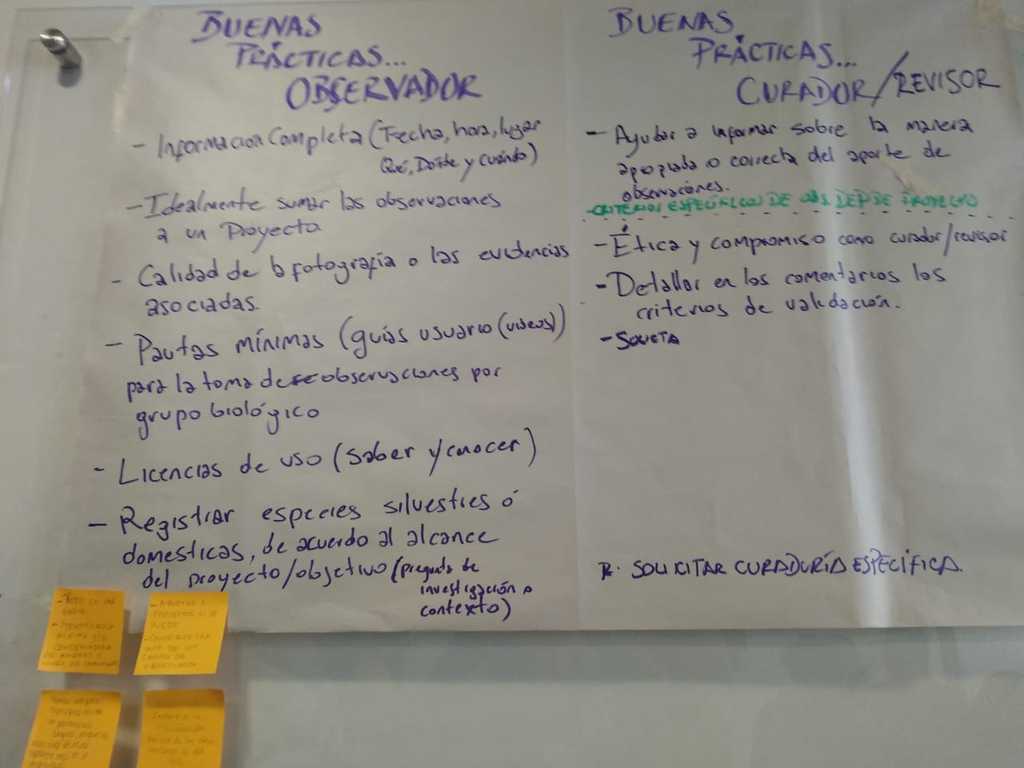 BUENAS
PRÁCTICAS...
OBSERVADOR
- Información Completa (Fecha, hora, lugar
Qué, Dónde y Cuándo)
- Idealmente sumar las observaciones
a un Proyecto
- Calidad de la fotografía o las evidencias
asociadas.
- Pautas mínimas (guías usuario (videos))
para la toma de observaciones por
grupo biológico
- Licencias de uso (Saber y conocer)
- Registrar especies silvestres ó
domesticas, de acuerdo al alcance
del proyecto/objetivo (pregunta de
investigación o
contexto)
BUENAS
PRÁCTICAS...
CURADOR/REVISOR
- Ayudar a informar sobre la manera
apropiada o correcta del aporte de
observaciones.
- CRITERIOS ESPECÍFICOS DE OBS. DEP. DE PROYECTO
- Ética y compromiso como curador/revisor
- Detallar en los comentarios los
criterios de validación.
- SOLICITA
R. SOLICITAR CURADURÍA ESPECÍFICA.